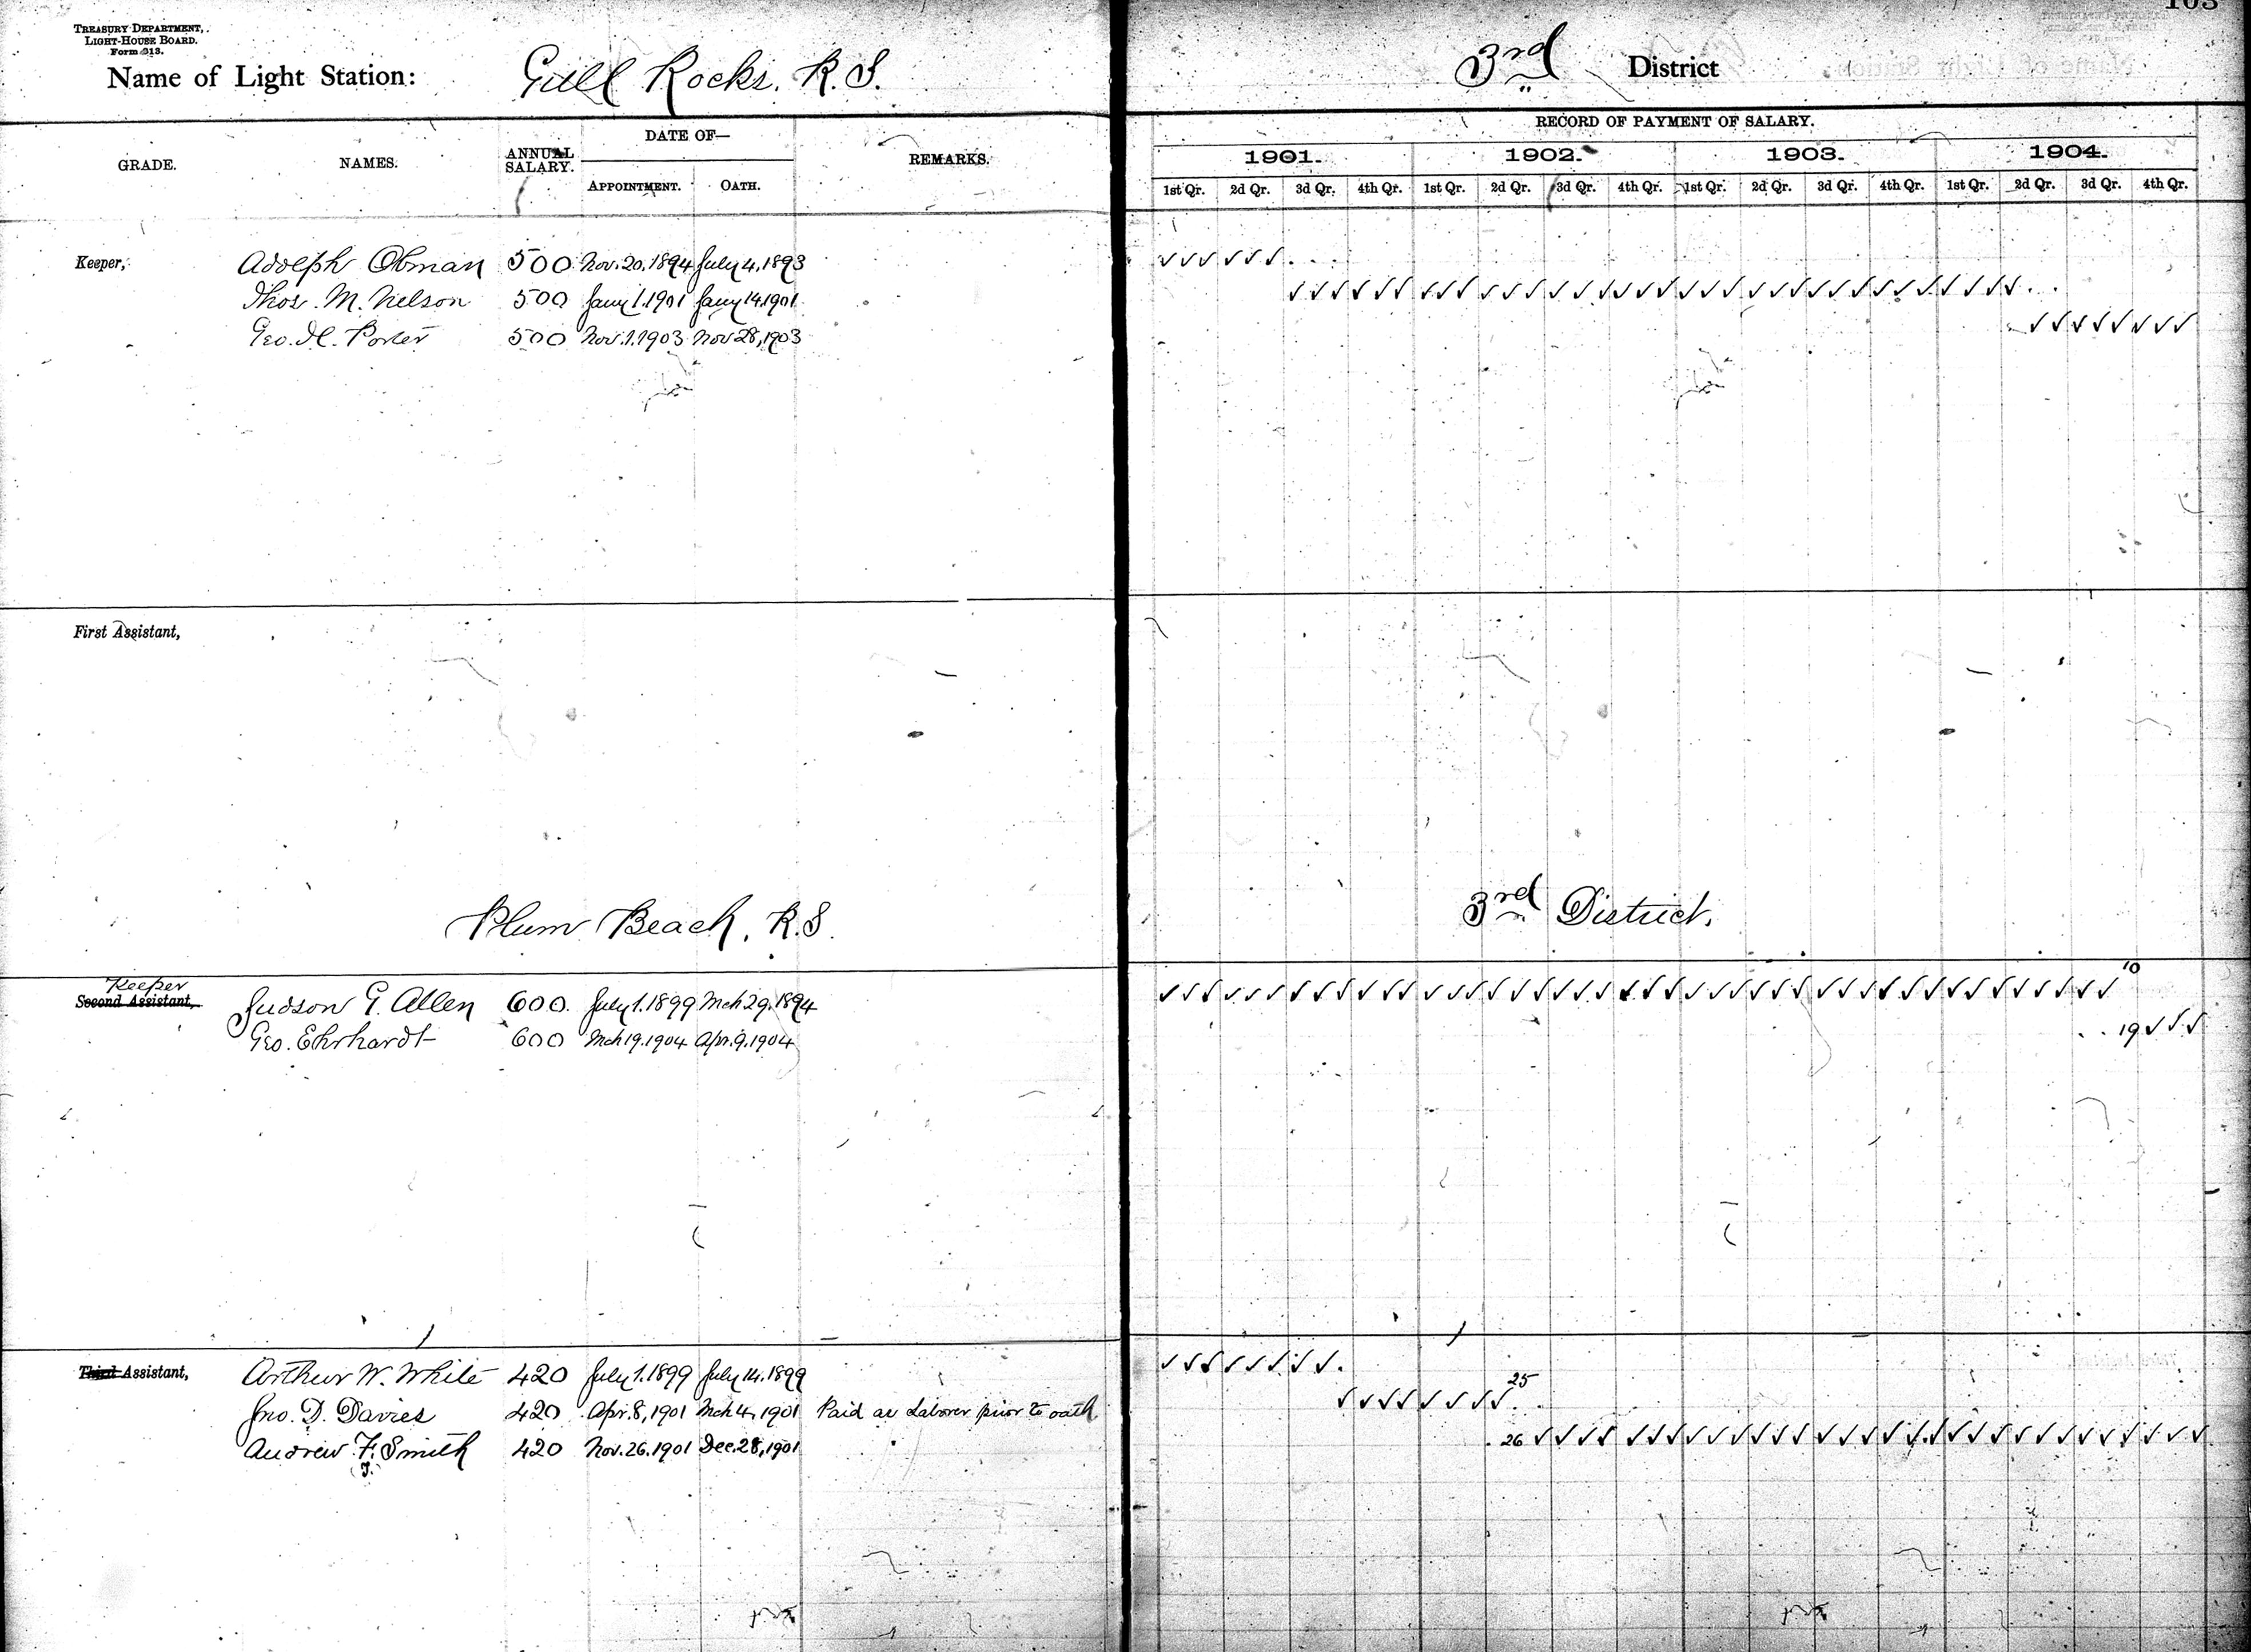 103
TREASURY DEPARTMENT,
LIGHT-HOUSE BOARD.
Form 313.
Name of Light Station: Gull Rocks, R.I. 3rd District
RECORD OF PAYMENT OF SALARY.
GRADE. NAMES. ANNUAL SALARY. DATE OF— REMARKS. 1901. 1902. 1903. 1904.
APPOINTMENT. OATH. 1st Qr. 2d Qr. 3d Qr. 4th Qr. 1st Qr. 2d Qr. 3d Qr. 4th Qr. 1st Qr. 2d Qr. 3d Qr. 4th Qr. 1st Qr. 2d Qr. 3d Qr. 4th Qr.
Keeper, Adolph Obman 500 Nov. 20, 1894 July 4, 1893 ✓✓✓✓✓✓
Thos. M. Nelson 500 Jany 1. 1901 Jany 14, 1901
Geo. H. Porter 500 Nov. 1. 1903 Nov 28, 1903
First Assistant,
Plum Beach, R.I. 3rd District.
Keeper
Second Assistant, Judson G. Allen 600. July 1. 1899 Mch 29, 1894 10
Geo. Ehrhardt 600 Mch 19. 1904 Apr. 9. 1904 19 ✓✓✓
Third Assistant, Arthur W. White 420 July 1. 1899 July 14. 1899
Jno. D. Davies 420 Apr. 8, 1901 Mch 4, 1901 Paid as Laborer prior to oath 25
Andrew F. Smith 420 Nov. 26. 1901 Dec. 28, 1901 26
(J.)